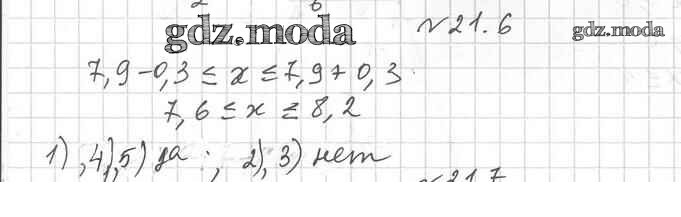 gdz.moda №21.6 gdz.moda
7,9-0,3 ≤ x ≤ 7,9+0,3
7,6 ≤ x ≤ 8,2
1),4),5) да ; 2), 3) нет
№21.7